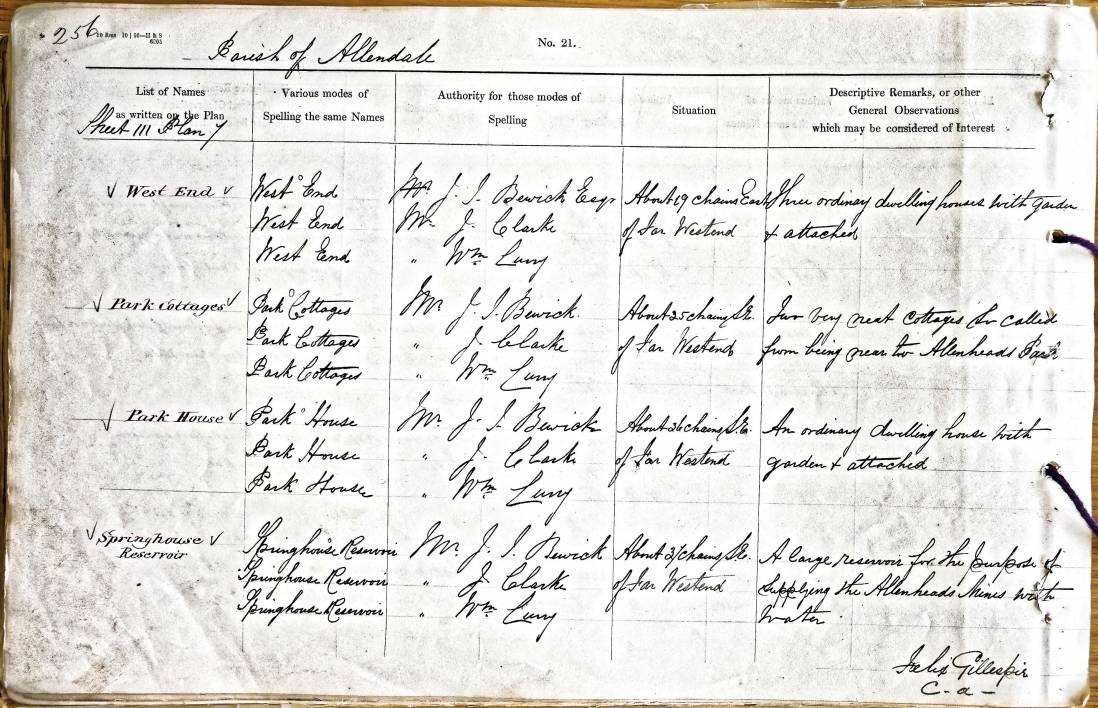 256
No. 21.
Parish of Allendale
List of Names as written on the Plan
Various modes of Spelling the same Names
Authority for those modes of Spelling
Situation
Descriptive Remarks, or other General Observations which may be considered of Interest
Sheet 111 Plan 7
West End West End Mr. J. I. Bewick Esqr About 19 chains East Three ordinary dwelling houses with garden
West End Mr J. Clarke of Far Westend & attached
West End " Wm
Park Cottages Park Cottages Mr J. I. Bewick. About 25 chains S.E. Two very neat cottages So called
Park Cottages " J Clarke of Far Westend from being near to Allenheads Park
Park Cottages " Wm
Park House Park House Mr. J. I. Bewick About 26 chains S.E. An ordinary dwelling house with
Park House " J Clarke of Far Westend garden & attached
Park House " Wm
Springhouse Reservoir Springhouse Reservoir Mr. J. I. Bewick About chains S.E. A large reservoir for the purpose of
Springhouse Reservoir " J Clarke of Far Westend supplying the Allenheads Mines with
Springhouse Reservoir " Wm water
Felix Gillespie
C. a -